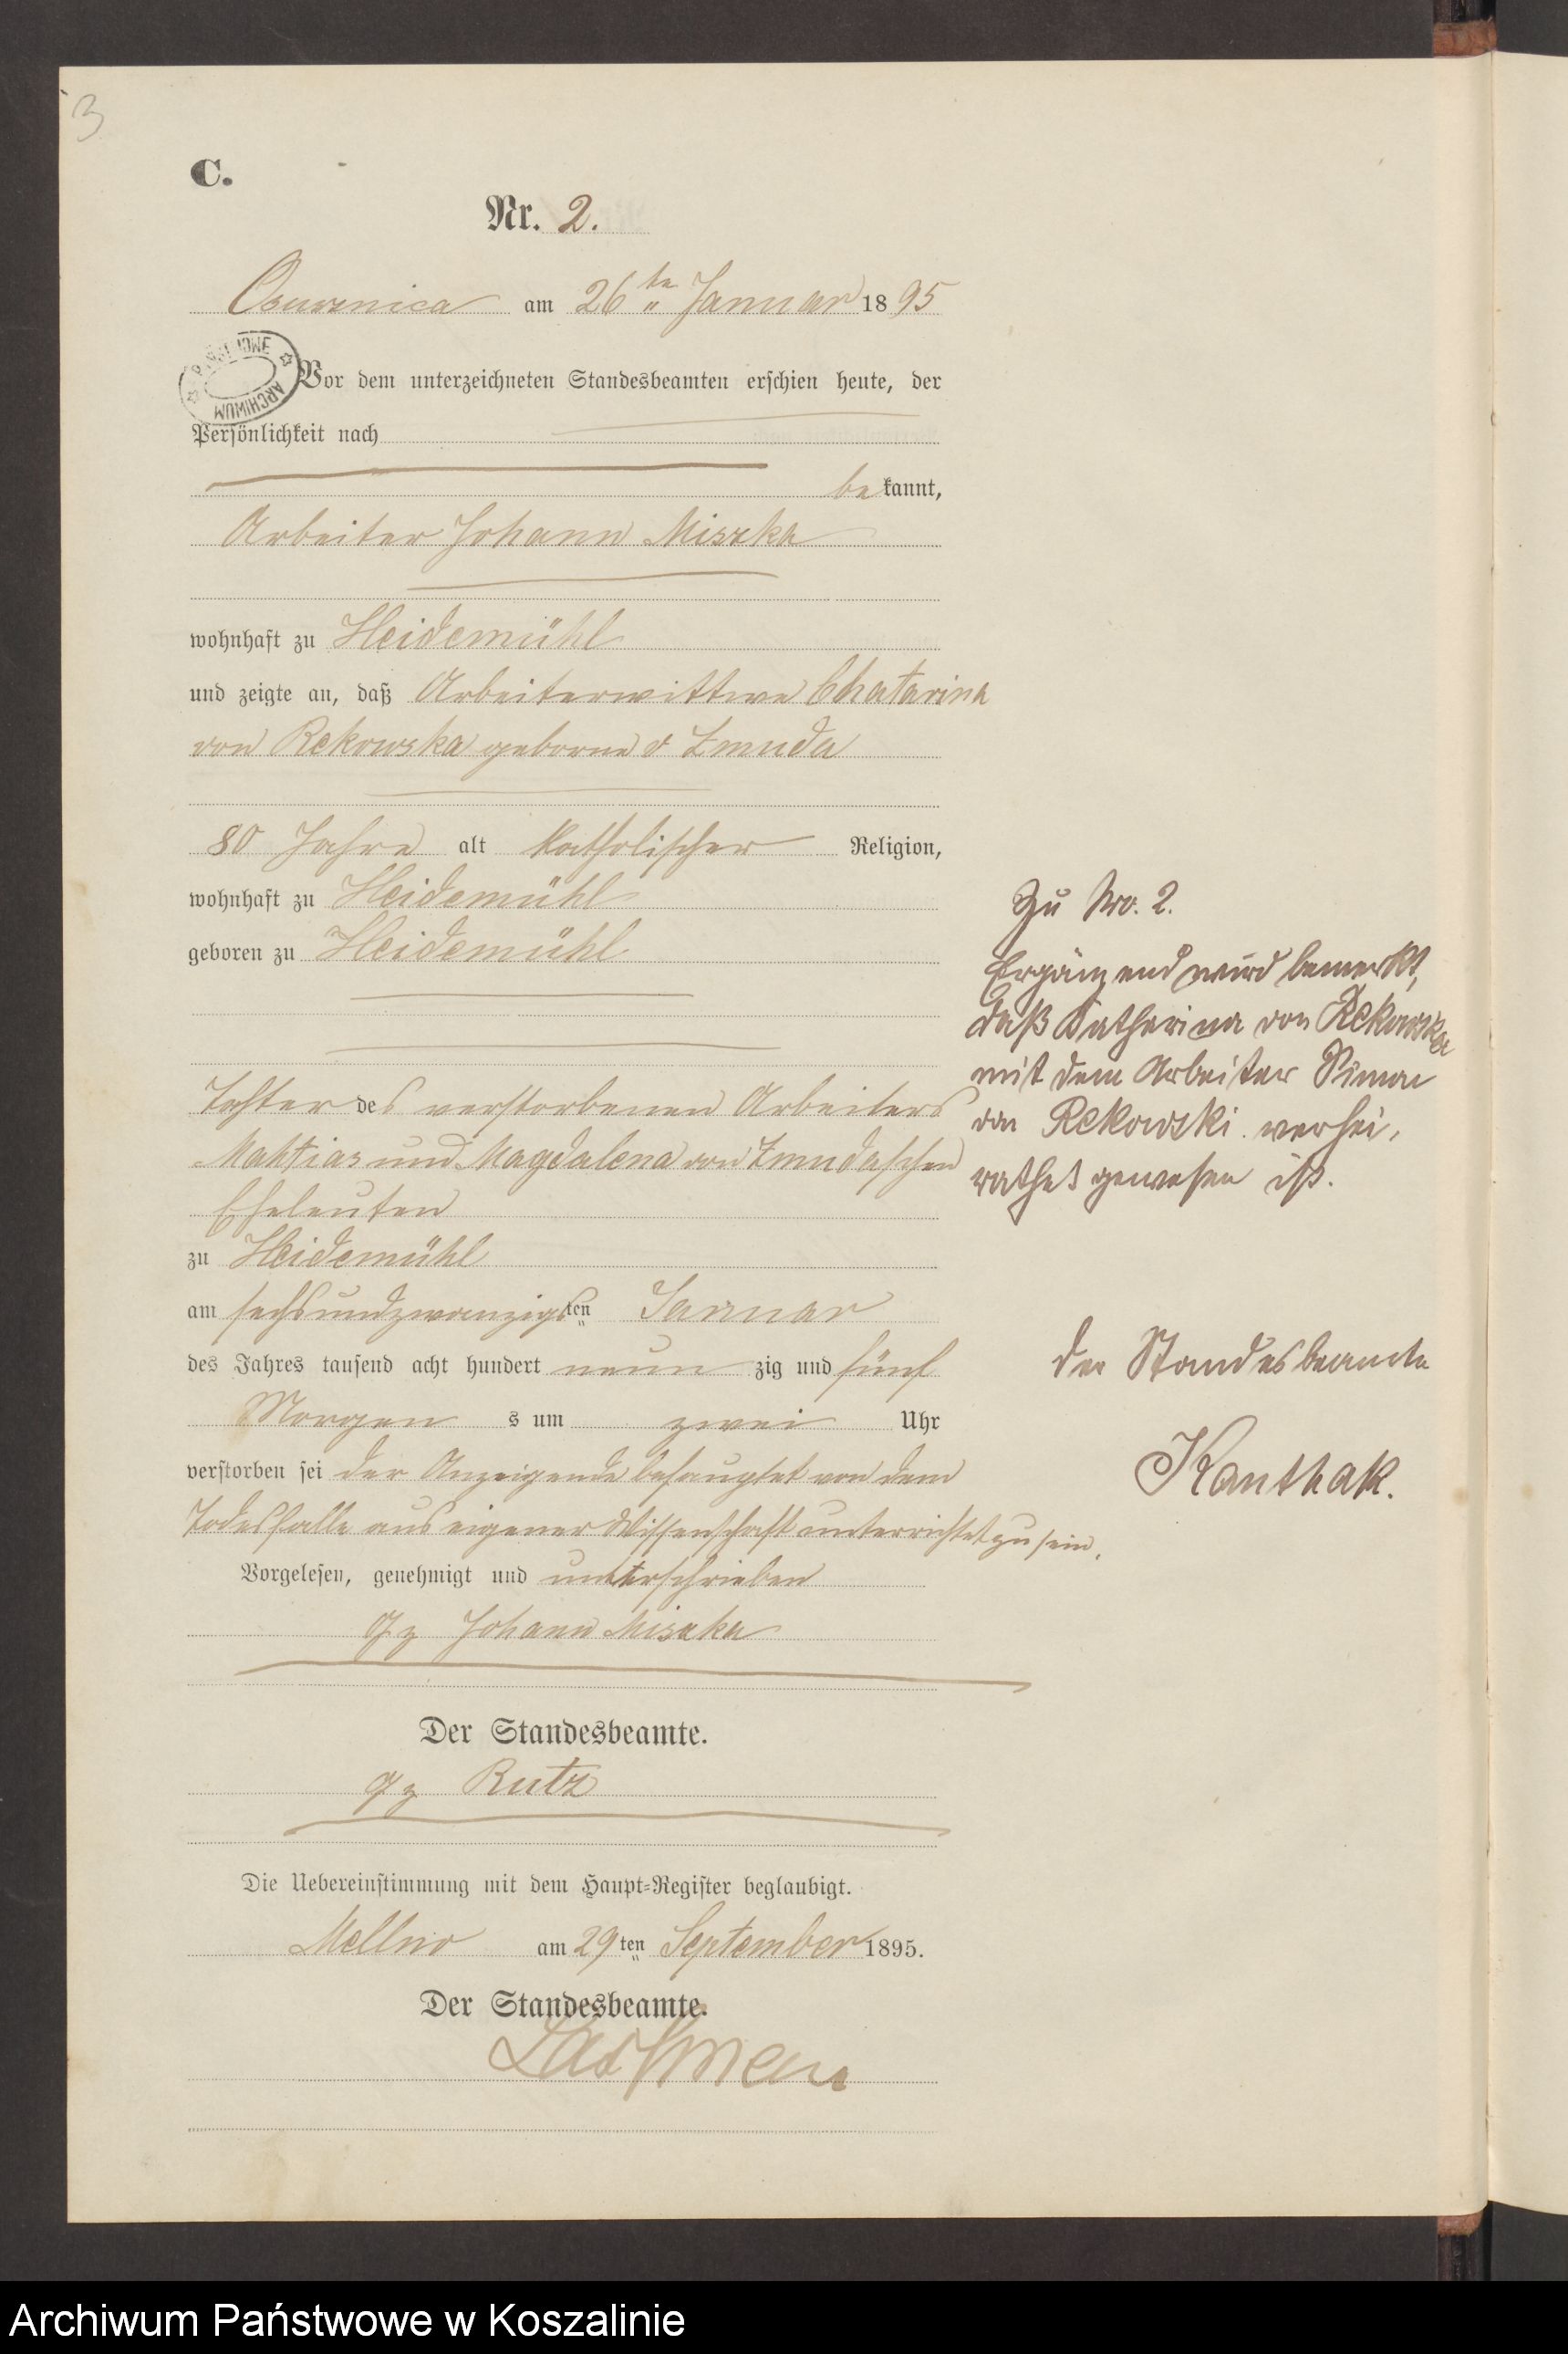 3
C.
Nr. 2.
Osusznica am 26ten Januar 1895
PAŃSTWOWE ARCHIWUM
Vor dem unterzeichneten Standesbeamten erschien heute, der
Persönlichkeit nach
bekannt,
Arbeiter Johann Miszka
wohnhaft zu Heidemühl
und zeigte an, daß Arbeiterwittwe Chatarina
von Rekowska geborne v Zmuda
80 Jahre alt katholischer Religion,
wohnhaft zu Heidemühl
geboren zu Heidemühl
Tochter des verstorbenen Arbeiters
Mahtias und Magdalena von Zmudaschen
Eheleuten
zu Heidemühl
am sechsundzwanzigsten Januar
des Jahres tausend acht hundert neunzig und fünf
Morgens um zwei Uhr
verstorben sei der Anzeigende behauptet von dem
Todesfalle aus eigener Wissenschaft unterrichtet zu sein.
Vorgelesen, genehmigt und unterschrieben
gz Johann Miszka
Der Standesbeamte.
gz Rutz
Die Uebereinstimmung mit dem Haupt-Register beglaubigt.
Mellno am 29ten September 1895.
Der Standesbeamte.
Zu Nro. 2.
Ergänzend wird bemerkt,
daß Katharina von Rekowska
mit dem Arbeiter Simon
von Rekowski verhei,
rathet gewesen ist.
Der Standesbeamte
Kanthak.
Archiwum Państwowe w Koszalinie